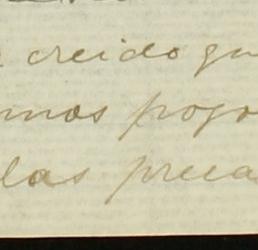 creido qu
mos pogo
las preca